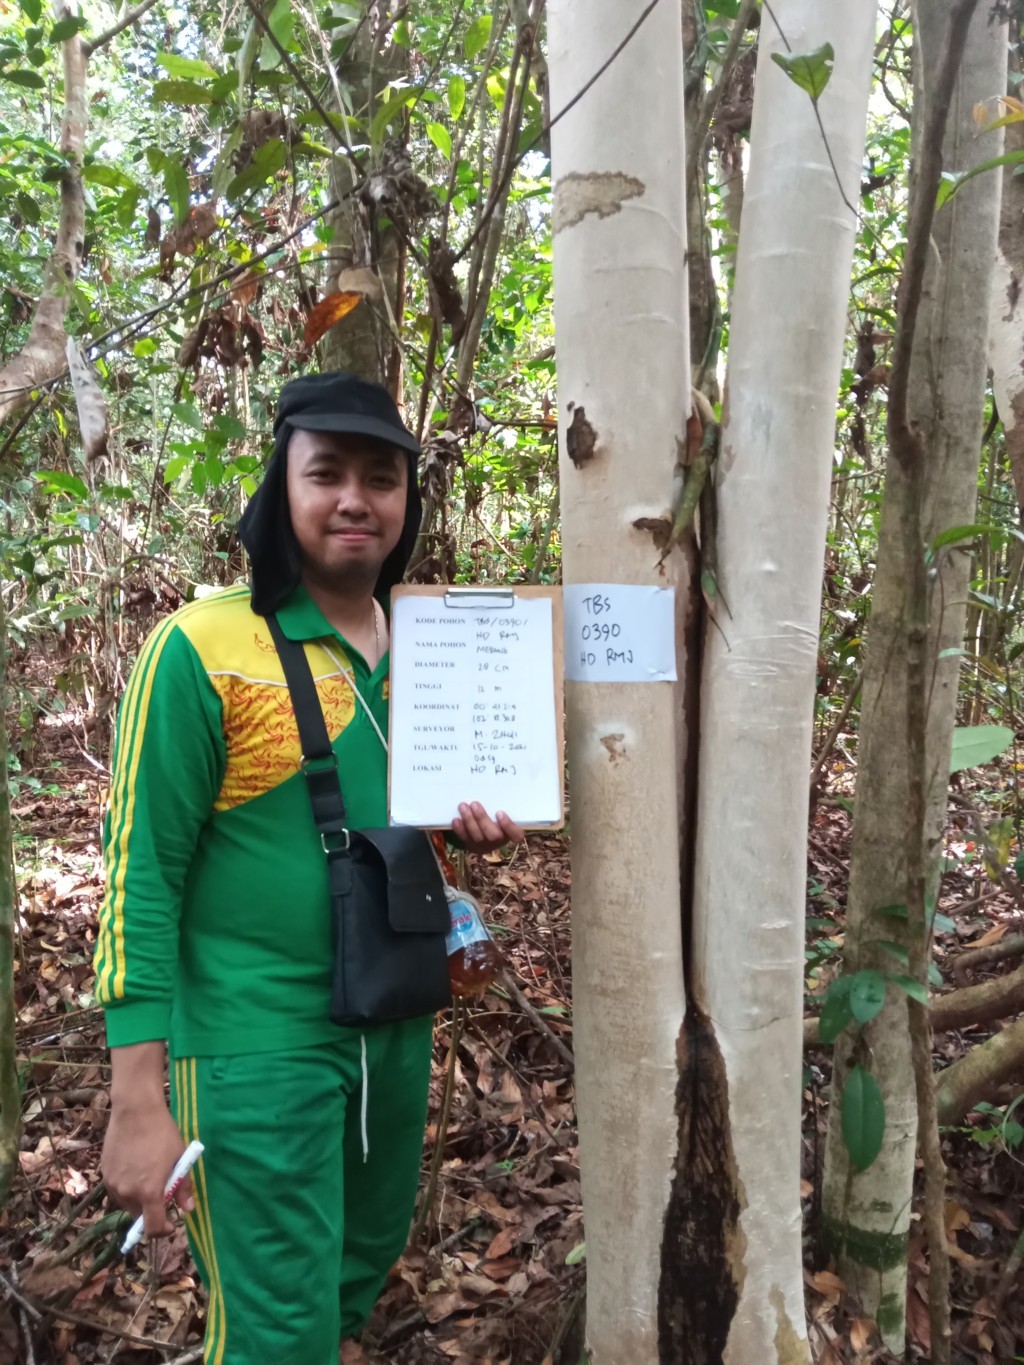 KODE POHON TBS/0390/
HD RMJ
NAMA POHON MEDANG
DIAMETER 28 cm
TINGGI 12 m
KOORDINAT
SURVEYOR M. ZAKI
TGL/WAKTU 15-10-2021
LOKASI HD RMJ
TBS
0390
HD RMJ